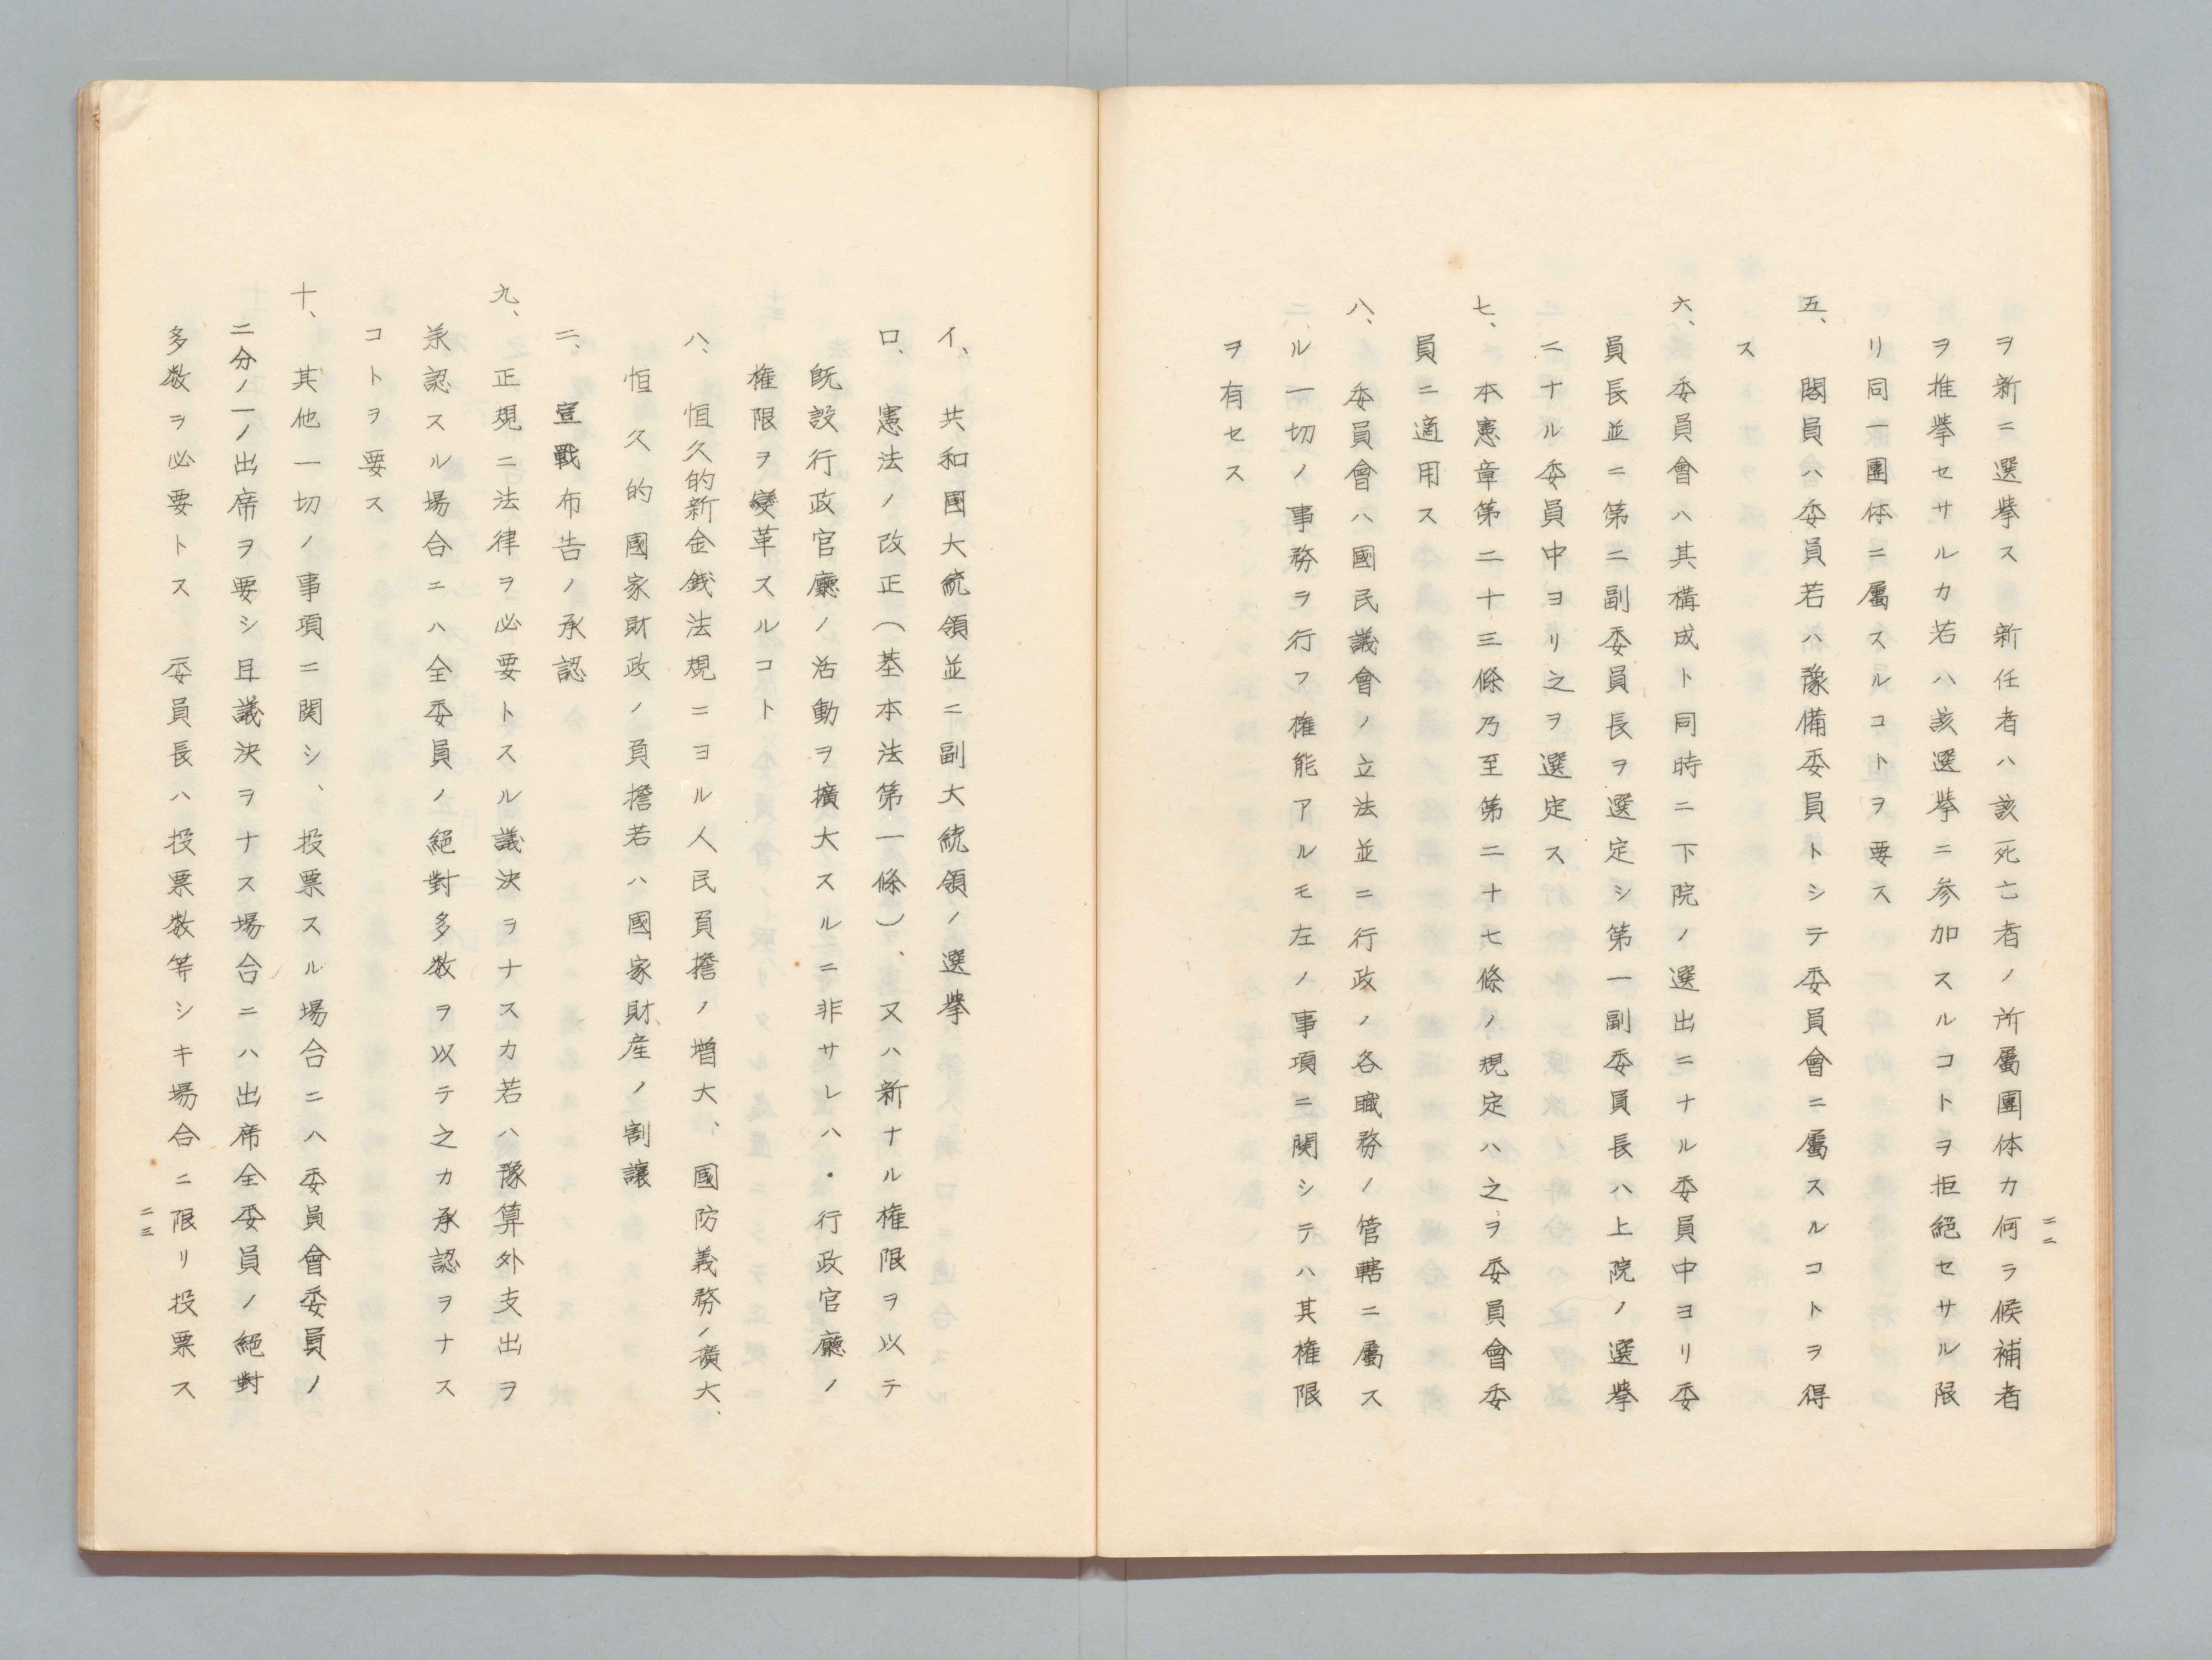 二二
ヲ新ニ選擧ス　新任者ハ該死亡者ノ所屬團体カ何ラ候補者
ヲ推擧セサルカ若ハ該選擧ニ参加スルコトヲ拒絕セサル限
リ同一團体ニ屬スルコトヲ要ス
五、閣員ハ委員若ハ豫備委員トシテ委員會ニ屬スルコトヲ得
ス
六、委員會ハ其構成ト同時ニ下院ノ選出ニナル委員中ヨリ委
員長並ニ第二副委員長ヲ選定シ第一副委員長ハ上院ノ選擧
ニナル委員中ヨリ之ヲ選定ス
七、本憲章第二十三條乃至第二十七條ノ規定ハ之ヲ委員會委
員ニ適用ス
八、委員會ハ國民議會ノ立法並ニ行政ノ各職務ノ管轄ニ屬ス
ル一切ノ事務ヲ行フ権能アルモ左ノ事項ニ関シテハ其権限
ヲ有セス
イ、共和國大統領並ニ副大統領ノ選擧
ロ、憲法ノ改正（基本法第一條）、又ハ新ナル権限ヲ以テ
既設行政官廳ノ活動ヲ擴大スルニ非サレハ・行政官廳ノ
権限ヲ變革スルコト
ハ、恒久的新金銭法規ニヨル人民負擔ノ増大、國防義務ノ擴大、
恒久的國家財政ノ負擔若ハ國家財産ノ割譲
ニ、宣戰布告ノ承認
九、正規ニ法律ヲ必要トスル議決ヲナスカ若ハ豫算外支出ヲ
承認スル場合ニハ全委員ノ絕對多数ヲ以テ之カ承認ヲナス
コトヲ要ス
十、其他一切ノ事項ニ関シ、投票スル場合ニハ委員會委員ノ
二分ノ一ノ出席ヲ要シ且議決ヲナス場合ニハ出席全委員ノ絕對
多数ヲ必要トス　委員長ハ投票数等シキ場合ニ限リ投票ス
二三